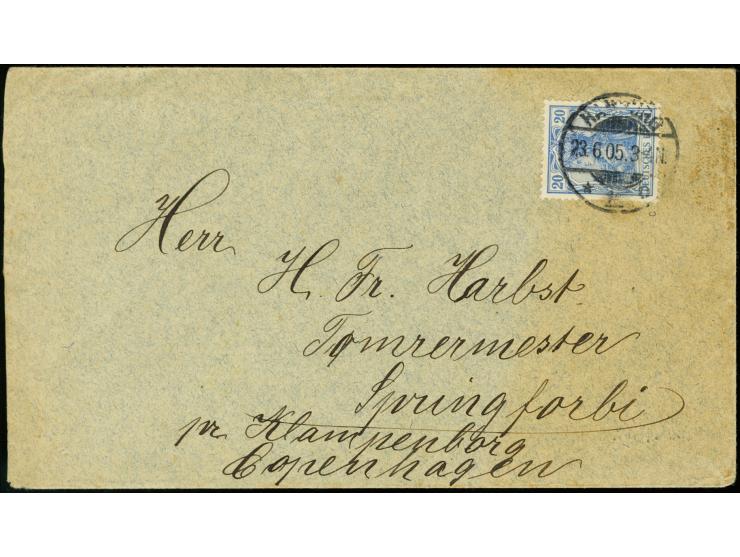 20
20
23.6.05.3-
N.
Herr
H. Fr. Harbst.
Tømrermester
Springforbi
pr. Klampenborg
Copenhagen